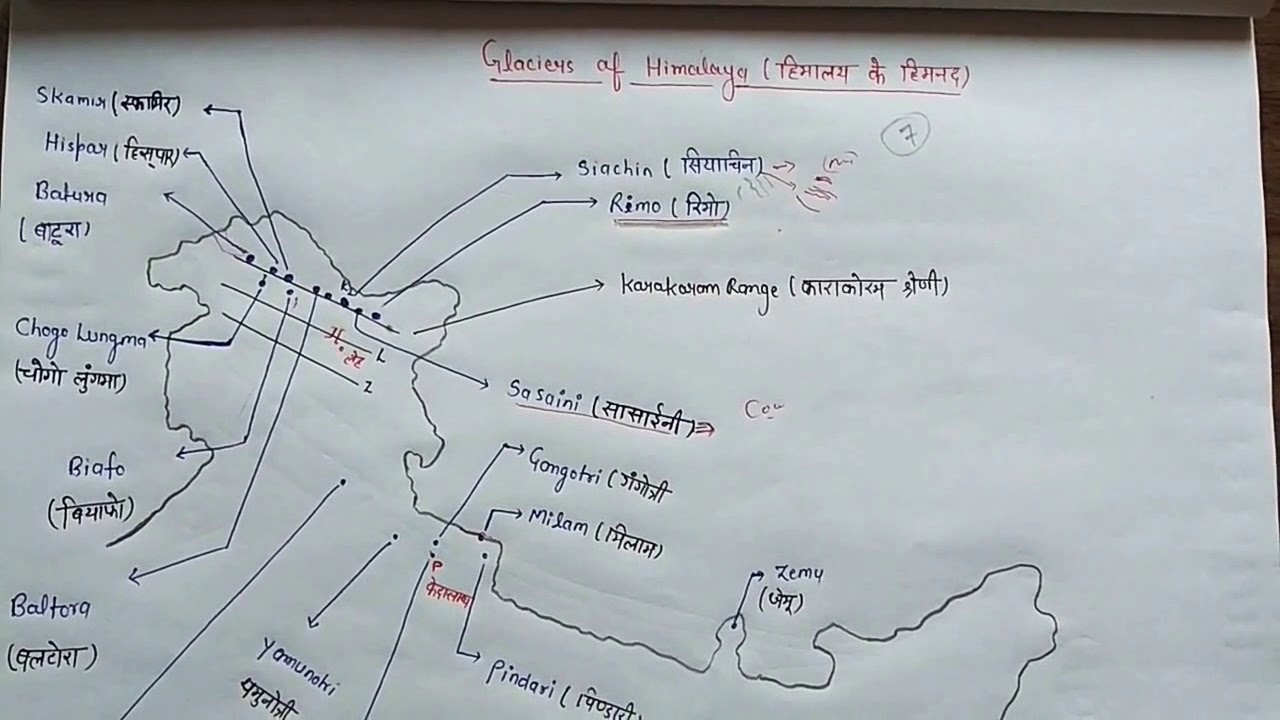 Glaciers of Himalaya (हिमालय के हिमनद)
7
Skamir (स्कामिर)
Hispar (हिस्पार)
Batura
(बाटूरा)
Siachin (सियाचिन)
Rimo (रिमो)
K2
Karakoram Range (काराकोरम श्रेणी)
Chogo Lungma
(चोगो लुंगमा)
L
Z
लेह
Sasaini (सासाईनी)
Biafo
(बियाफो)
Gongotri (गंगोत्री
Milam (मिलाम)
P
केदारनाथ
Zemu
(जेमू)
Baltora
(बलटोरा)
Yamunotri
यमुनोत्री
Pindari (पिण्डारी)